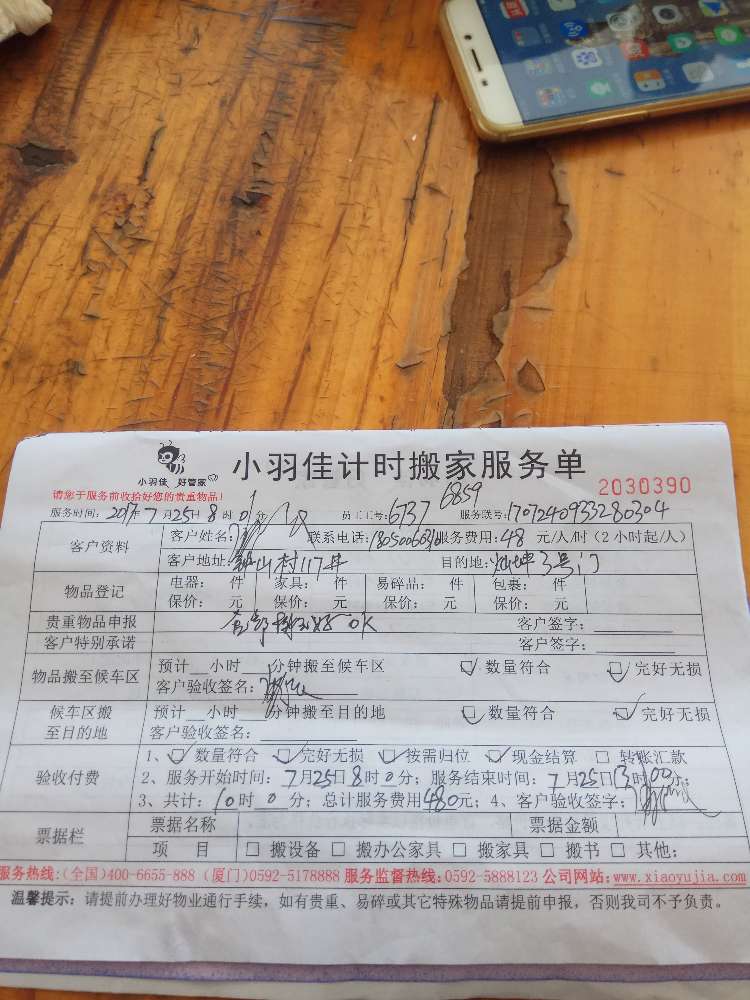 小羽佳 好管家
小羽佳计时搬家服务单
请您于服务前收拾好您的贵重物品!
2030390
服务时间: 2017年7月25日8时0分 员工工号: 6737 6859 服务联号: 170724093328030​4
客户资料 客户姓名: 联系电话: 服务费用: 48 元/人/时 (2小时起/人)
客户地址: 山村117号 目的地: 3号门
物品登记 电器: 件 家具: 件 易碎品: 件 包裹: 件
保价: 元 保价: 元 保价: 元 保价: 元
贵重物品申报 OK 客户签字:
客户特别承诺 客户签字:
物品搬至候车区 预计__小时__分钟搬至候车区 ☑ 数量符合 ☑ 完好无损
客户验收签名:
候车区搬至目的地 预计__小时__分钟搬至目的地 ☑ 数量符合 ☑ 完好无损
客户验收签名:
验收付费 1、☑ 数量符合 ☑ 完好无损 ☑ 按需归位 ☑ 现金结算 □ 转账汇款
2、服务开始时间: 7月25日8时0分; 服务结束时间: 7月25日13时00分;
3、共计: 10时0分; 总计服务费用480元; 4、客户验收签字:
票据栏 票据名称 票据金额
项 目 □ 搬设备 □ 搬办公家具 □ 搬家具 □ 搬书 □ 其他:
服务热线:(全国)400-6655-888 (厦门)0592-5178888 服务监督热线:0592-5888123 公司网站:www.xiaoyujia.com
温馨提示: 请提前办理好物业通行手续, 如有贵重、易碎或其它特殊物品请提前申报, 否则我司不予负责。